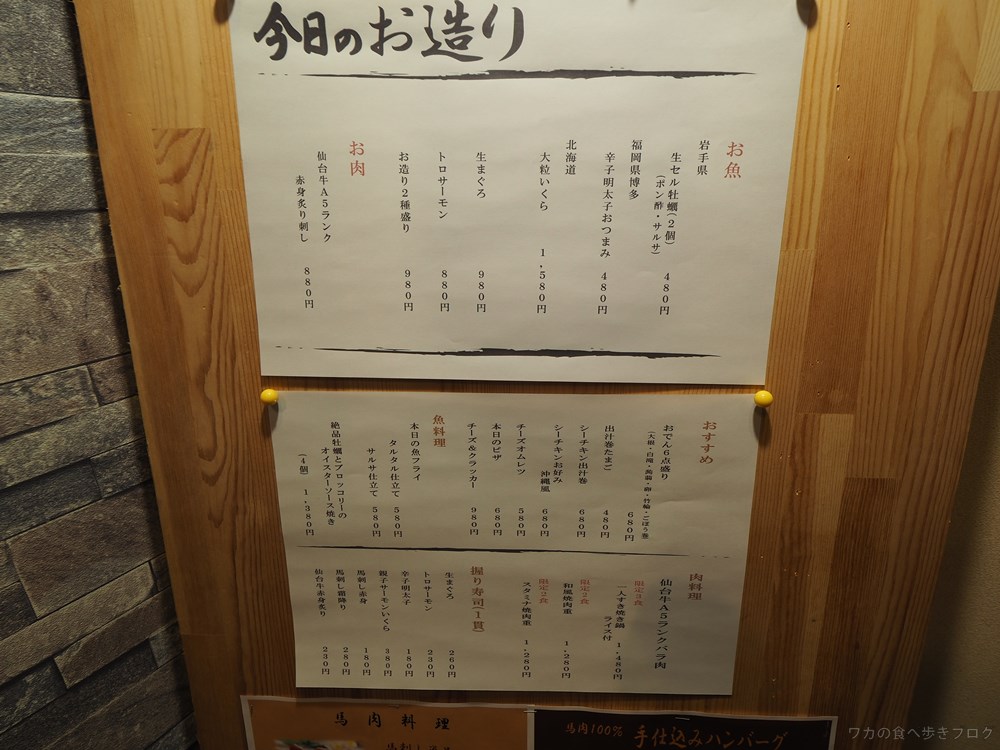 今日のお造り
お魚
岩手県
生セル牡蠣(2個)
(ポン酢・サルサ)
480円
福岡県博多
辛子明太子おつまみ 480円
北海道
大粒いくら 1,580円
生まぐろ 980円
トロサーモン 880円
お造り2種盛り 980円
お肉
仙台牛A5ランク
赤身炙り刺し 880円
おすすめ
おでん6点盛り
(大根・白滝・蒟蒻・卵・竹輪・ごぼう巻)
680円
出汁巻たまご 480円
シーチキン出汁巻 680円
シーチキンお好み
沖縄風 680円
チーズオムレツ 580円
本日のピザ 680円
チーズ&クラッカー 980円
魚料理
本日の魚フライ
タルタル仕立て 580円
サルサ仕立て 580円
絶品牡蠣とブロッコリーの
オイスターソース焼き
(4個) 1,380円
肉料理
仙台牛A5ランクバラ肉
限定3食
一人すき焼き鍋
ライス付 1,480円
限定2食
和風焼肉重 1,280円
限定2食
スタミナ焼肉重 1,280円
握り寿司(1貫)
生まぐろ 260円
トロサーモン 230円
辛子明太子 180円
親子サーモンいくら 380円
馬刺し赤身 180円
馬刺し霜降り 280円
仙台牛赤身炙り 230円
馬肉料理
馬肉100%
手仕込みハンバーグ
ワカの食べ歩きブログ